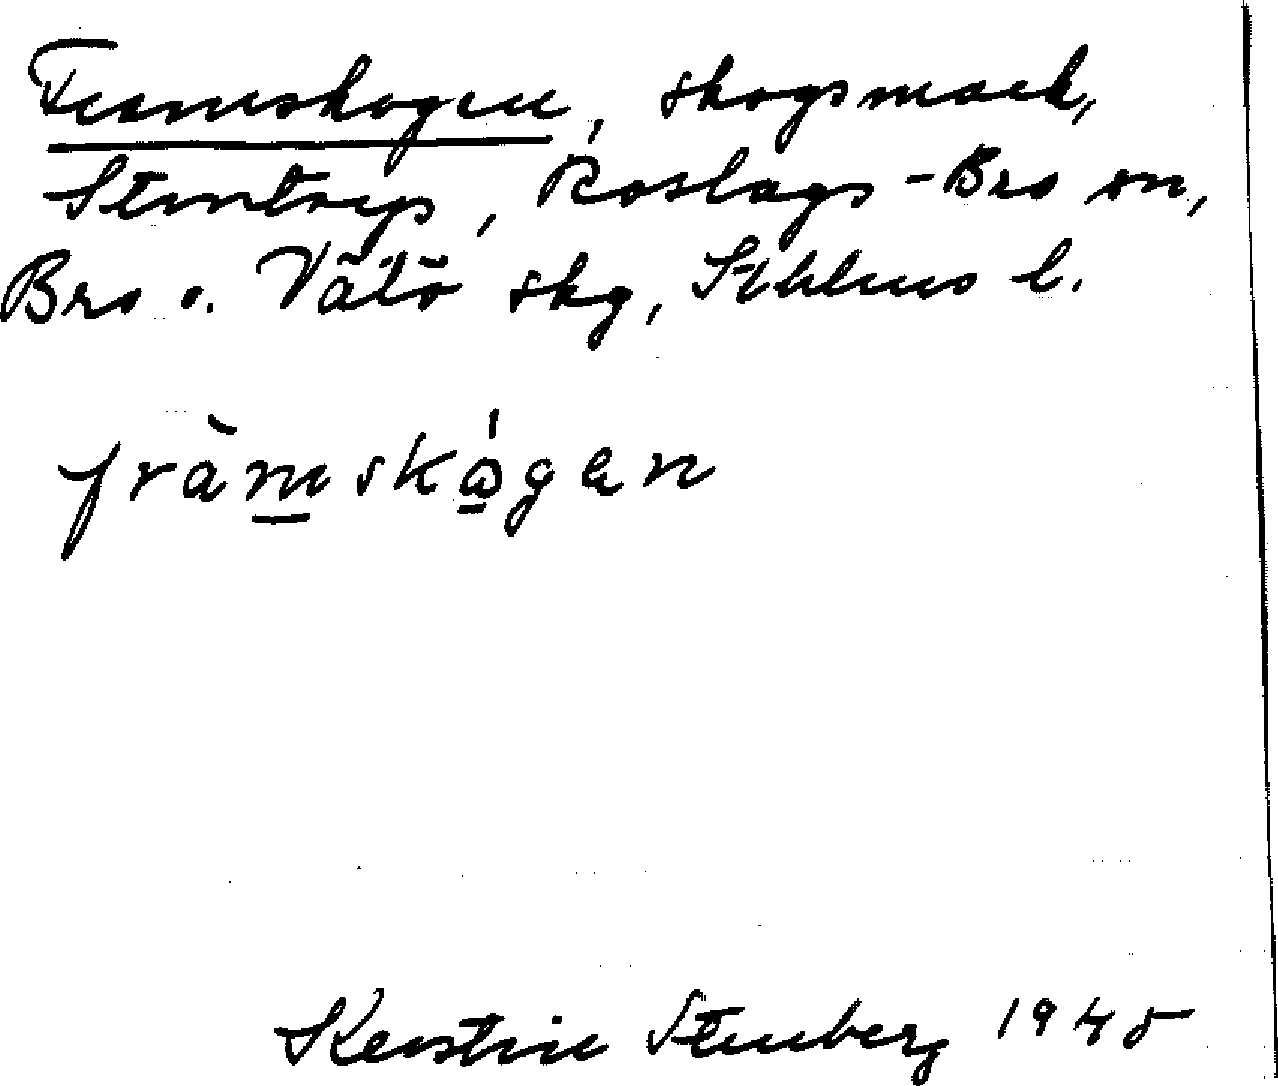 Framskogen, skogsmark,
Stentorp, Roslags-Bro sn,
Bro o. Vätö skg, Sthlms l.
fràmskógen
Kerstin Stenberg 1945